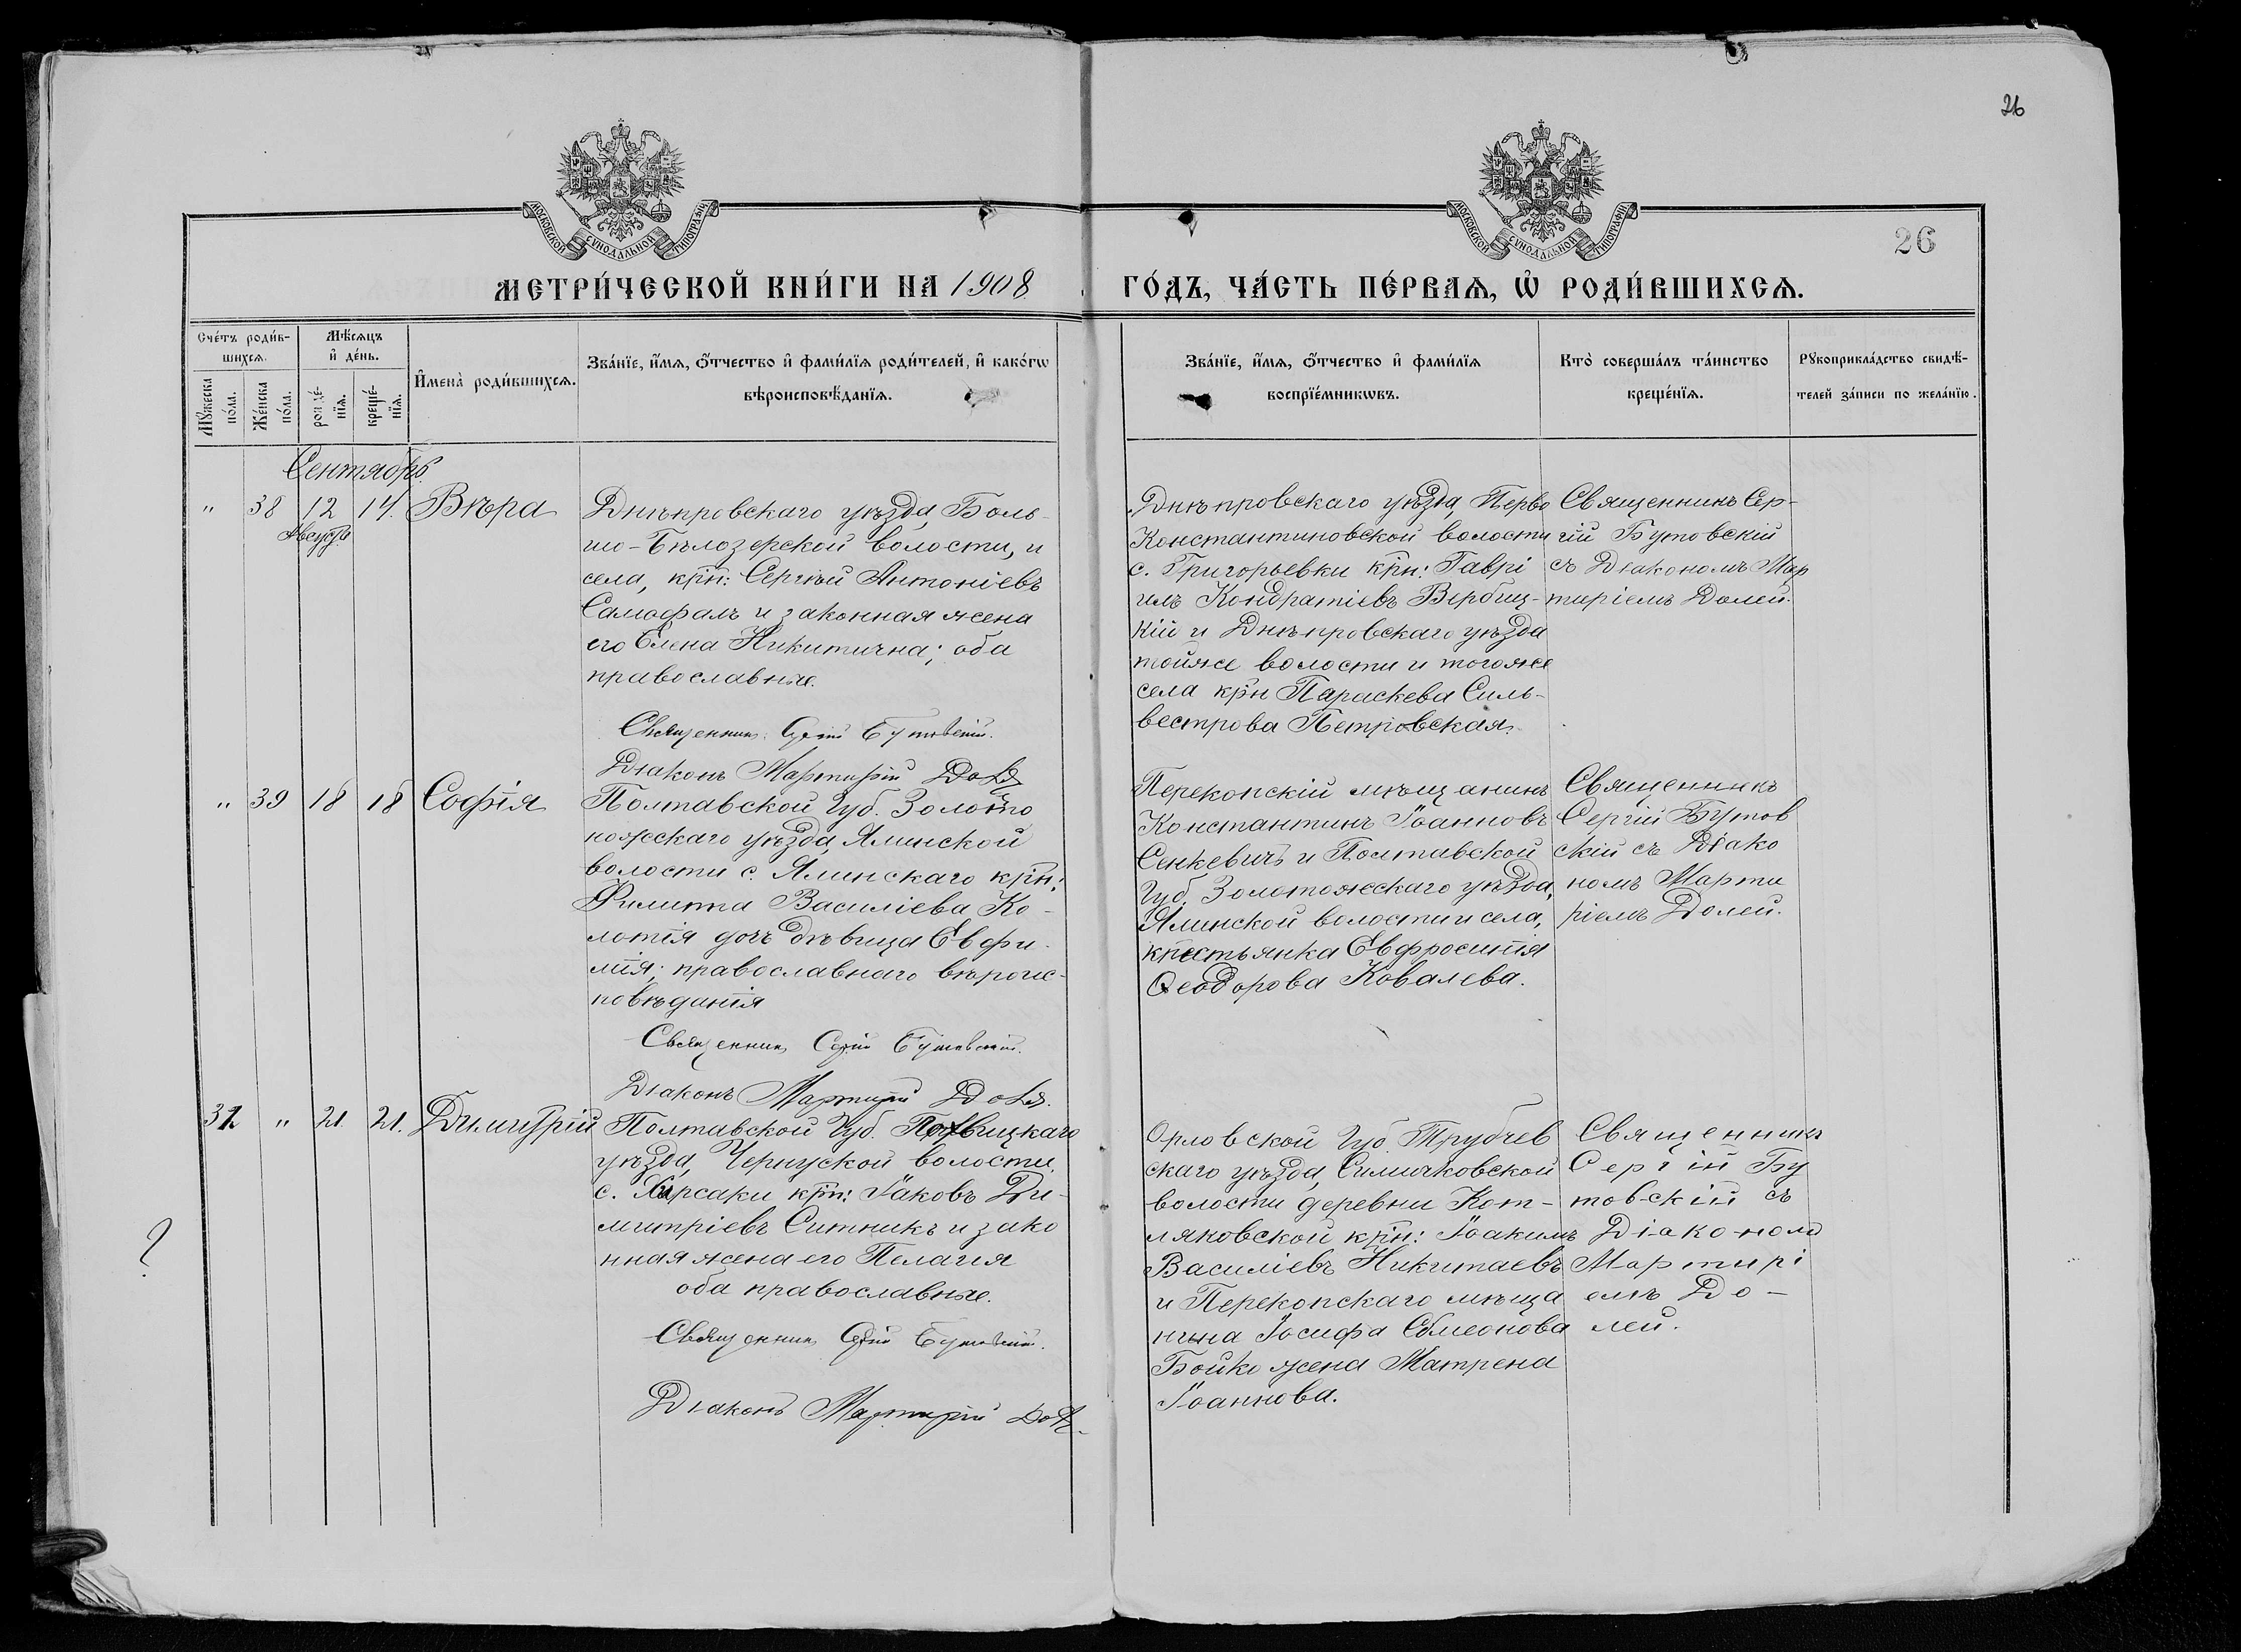 26
МОСКОВСКОЙ СѴНОДАЛЬНОЙ ТИПОГРАФІИ
МОСКОВСКОЙ СѴНОДАЛЬНОЙ ТИПОГРАФІИ
26
МЕТРИ́ЧЕСКОЙ КНИ́ГИ НА 1908
ГО́ДЪ, ЧА́СТЬ ПЕ́РВАѦ, Ѡ҆ РОДИ́ВШИХСѦ.
Сче́тъ роди́в-
шихсѧ.
Мѣ́сѧцъ
и҆ де́нь.
Мꙋ́жеска
по́ла.
Же́нска
по́ла.
рожде́-
нїѧ.
креще́-
нїѧ.
И҆мена̀ роди́вшихсѧ.
Зва́нїе, и҆́мѧ, ѻ҆́тчество и҆ фами́лїѧ роди́телей, и҆ како́гѡ
вѣроисповѣ́данїѧ.
Зва́нїе, и҆́мѧ, ѻ҆́тчество и҆ фами́лїѧ
воспрїе́мникѡвъ.
Кто̀ соверша́лъ та́инство
креще́нїѧ.
Рꙋкоприкла́дство свидѣ́-
телей за́писи по жела́нїю.
Сентябрь
" 38 12 14. Вѣра
Августъ
Днѣпровскаго уѣзда, Боль-
шо-Бѣлозерской волости, и
села, крн: Сергѣй Антоніевъ
Самофалъ и законная жена
его Елена Никитична; оба
православные.
Священникъ Сергій Бутовскій.
Діаконъ Мартирій Долѣ
Днѣпровскаго уѣзда, Перво
Константиновской волости
с. Григорьевки крн: Гаврі
илъ Кондратіевъ Вербиц-
кій и Днѣпровскаго уѣзда
тойже волости и тогоже
села крн Параскева Силь-
вестрова Петровская.
Священникъ Сер-
гій Бутовскій
съ Діакономъ Мар
тиріемъ Долей.
" 39 18 18 Софія
Полтавской Губ. Золото
ножскаго уѣзда, Ялинской
волости с. Ялинскаго крн:
Филиппа Василіева Ко-
лотія дочь дѣвица Евфи-
мія; православнаго вѣроис-
повѣданія
Священникъ Сергій Бутовскій.
Діаконъ Мартирій Доля.
Перекопскій мѣщанинъ
Константинъ Іоанновъ
Сенкевичъ и Полтавской
Губ. Золотожскаго уѣзда,
Ялинской волости и села,
крестьянка Евфросинія
Ѳеодорова Ковалева.
Священникъ
Сергій Бутов
скій съ Діако
номъ Марти
ріемъ Долей.
32 " 21 21. Димитрій
Полтавской Губ.
уѣзда, Чернуской волости,
с. Харсаки крн: Іаковъ Ди-
митріевъ Ситникъ и зако
нная жена его Пелагія
оба православные.
Священникъ Сергій Бутовскій.
Діаконъ Мартирій
Орловской Губ. Трубчев
скаго уѣзда, Симичковской
волости деревни Кот-
ляковской крн: Іоакимъ
Василіевъ Никитаевъ
и Перекопскаго мѣща
нина Іосифа Сѵмеонова
Бойко жена Матрена
Іоаннова.
Священникъ
Сергій Бу
товскій съ
Діакономъ
Мартирі
емъ До-
лей.
?